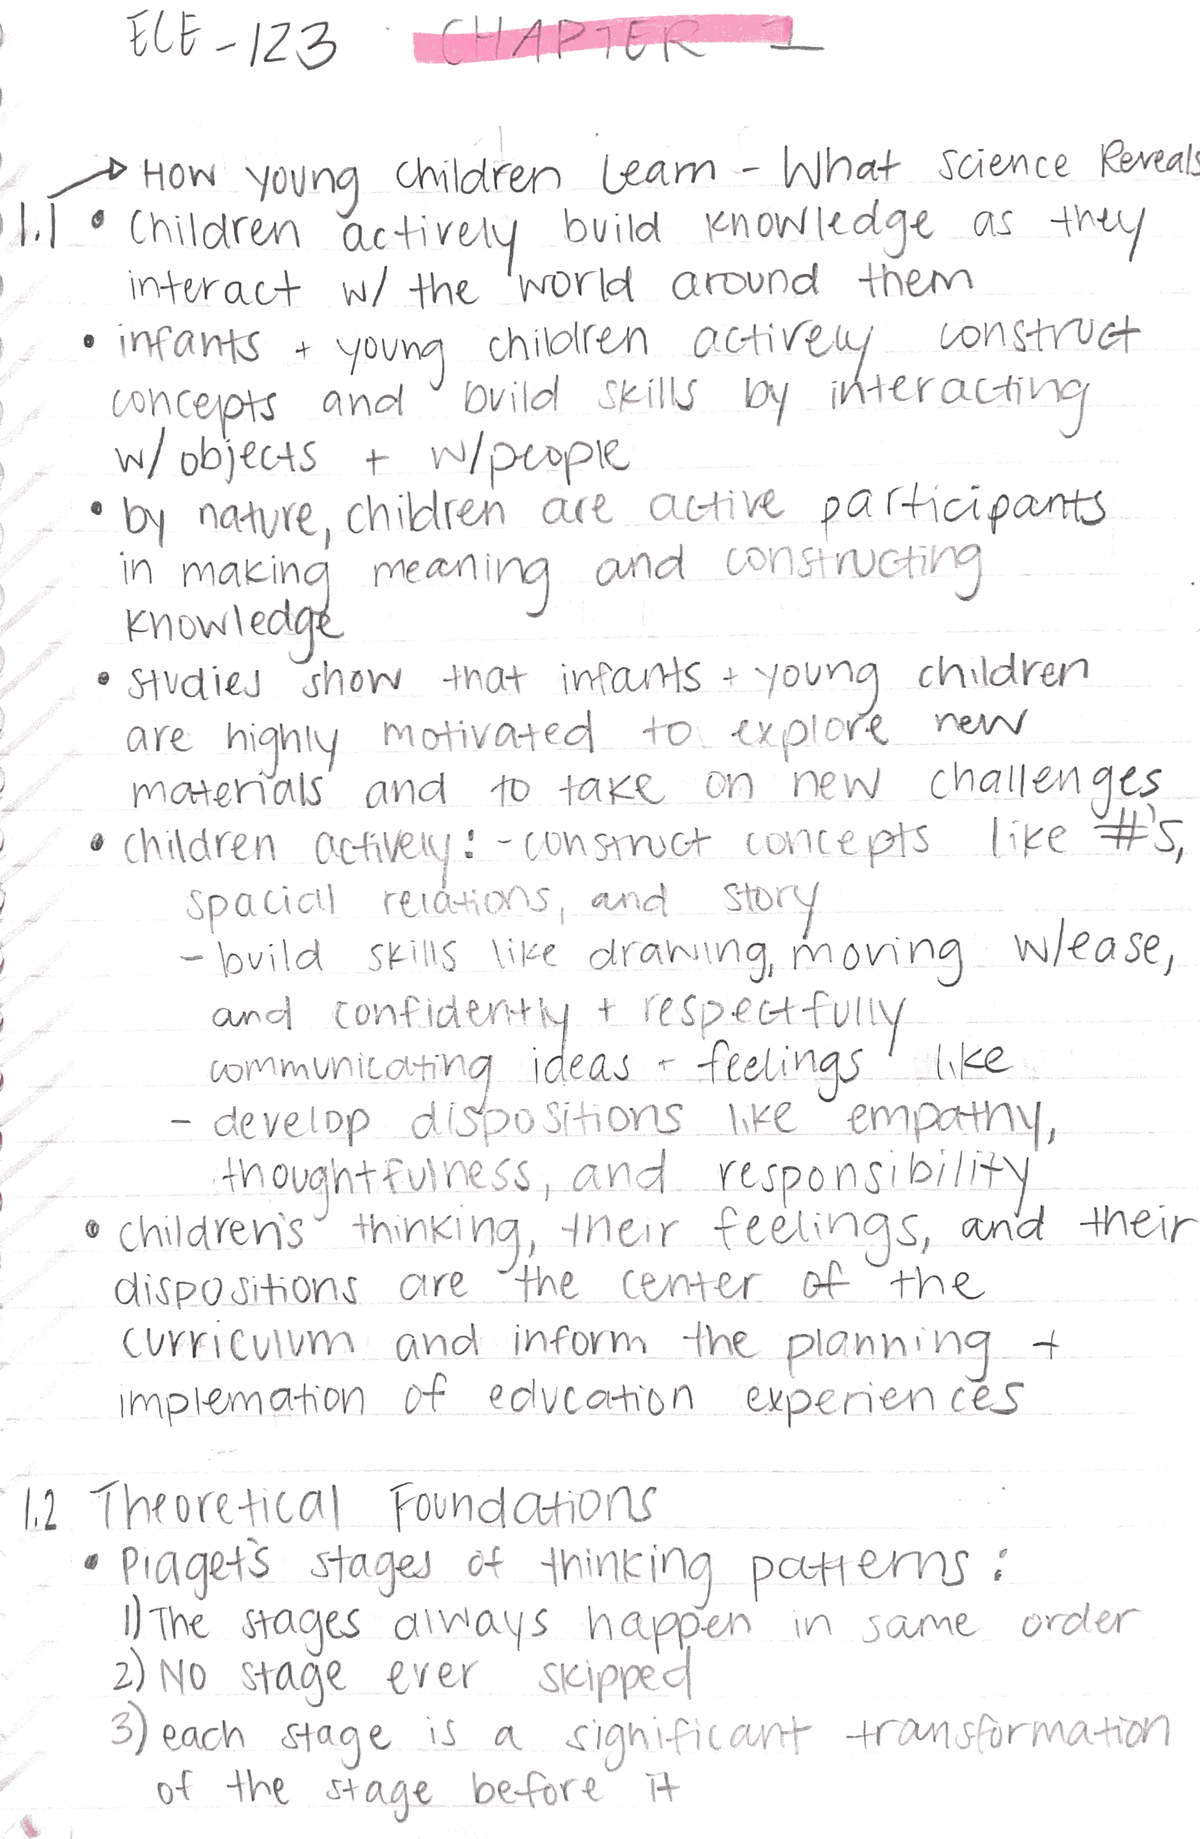 ECE-123 CHAPTER 1
→ How young children learn - What science Reveals
1.1 • Children actively build knowledge as they
interact w/ the world around them
• infants + young children actively construct
concepts and build skills by interacting
w/ objects + w/people
• by nature, children are active participants
in making meaning and constructing
knowledge
• studies show that infants + young children
are highly motivated to explore new
materials and to take on new challenges
• children actively: - construct concepts like #'s,
spacial relations, and story
- build skills like drawing, moving w/ease,
and confidently + respectfully
communicating ideas + feelings like
- develop dispositions like empathy,
thoughtfulness, and responsibility
• children's thinking, their feelings, and their
dispositions are the center of the
curriculum and inform the planning +
implemation of education experiences
1.2 Theoretical Foundations
• Piaget's stages of thinking patterns:
1) The stages always happen in same order
2) No stage ever skipped
3) each stage is a significant transformation
of the stage before it